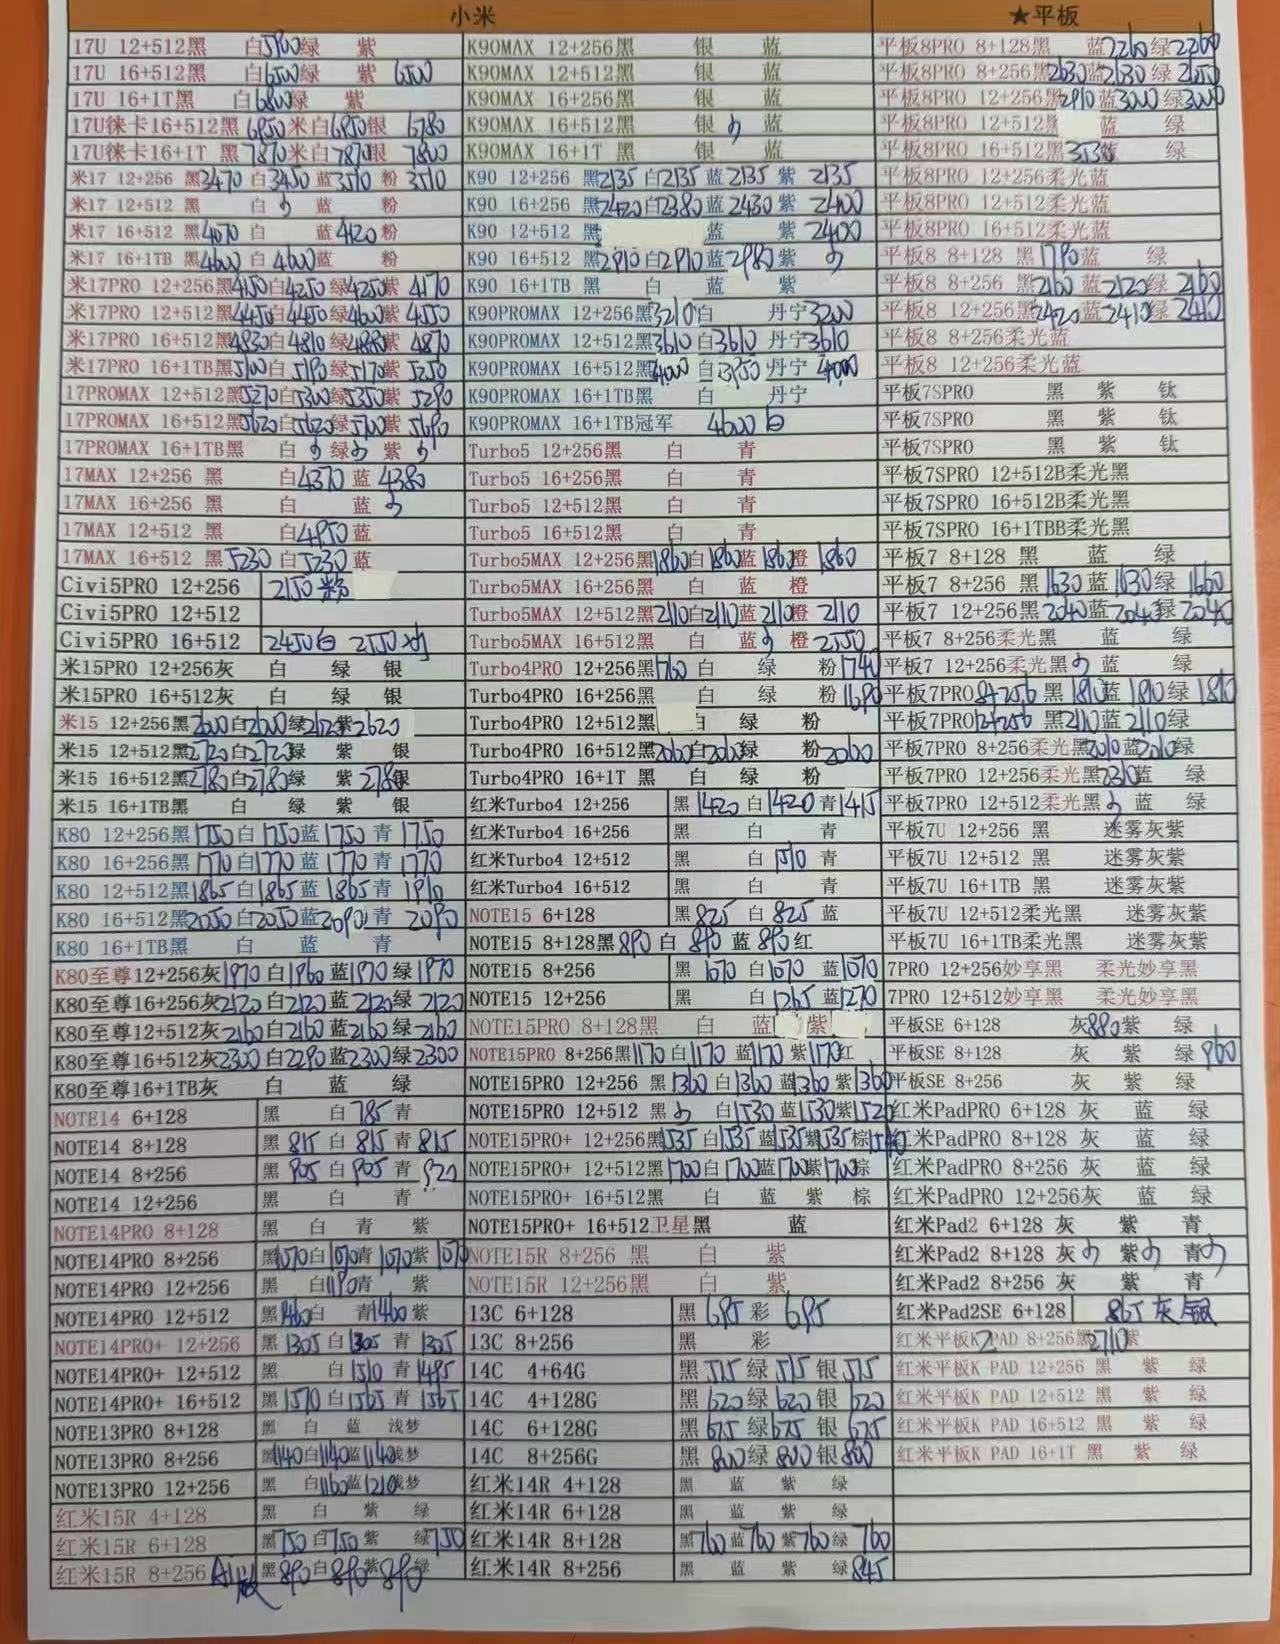 小米
17U 12+512黑 白5900绿 紫
17U 16+512黑 白6500绿 紫 6500
17U 16+1T黑 白6800绿 紫
17U徕卡16+512黑 6950米白6950银 6780
17U徕卡16+1T 黑 7870米白7870银 7800
米17 12+256 黑3470 白3450蓝3510 粉 3510
米17 12+512 黑 白 蓝 粉
米17 16+512 黑4070 白 蓝4120粉
米17 16+1TB 黑4600 白 4600蓝 粉
米17PRO 12+256黑4150白4250绿4250紫 4170
米17PRO 12+512黑4450白4450绿4600紫 4550
米17PRO 16+512黑4830白4810绿4880紫 4870
米17PRO 16+1TB黑5100白5190绿5170紫 5250
17PROMAX 12+512黑5270白5300绿5350紫 5290
17PROMAX 16+512黑5620白5620绿5700紫 5690
17PROMAX 16+1TB黑 白 绿 紫
17MAX 12+256 黑 白4370 蓝 4380
17MAX 16+256 黑 白 蓝
17MAX 12+512 黑 白4950蓝
17MAX 16+512 黑 5230 白5230蓝
Civi5PRO 12+256 2150 粉
Civi5PRO 12+512
Civi5PRO 16+512 2450白 2550
米15PRO 12+256灰 白 绿 银
米15PRO 16+512灰 白 绿 银
米15 12+256黑2600白2600绿2625紫2620
米15 12+512黑2720白2720绿 紫 银
米15 16+512黑2780白2780绿 紫 2780银
米15 16+1TB黑 白 绿 紫 银
K80 12+256黑1750白1750蓝1750青 1750
K80 16+256黑1770白1770蓝1770青 1770
K80 12+512黑1865白1865蓝1865青 1910
K80 16+512黑2050白2050蓝2090青 2090
K80 16+1TB黑 白 蓝 青
K80至尊12+256灰1970白1960蓝1970绿 1970
K80至尊16+256灰2120白2120蓝2120绿 2120
K80至尊12+512灰2160白2160蓝2160绿 2160
K80至尊16+512灰2300白2290蓝2300绿2300
K80至尊16+1TB灰 白 蓝 绿
NOTE14 6+128 黑 白785青
NOTE14 8+128 黑 815 白 815 青 815
NOTE14 8+256 黑 905 白 905 青 920
NOTE14 12+256 黑 白 青
NOTE14PRO 8+128 黑 白 青 紫
NOTE14PRO 8+256 黑1070白1070青1070紫1070
NOTE14PRO 12+256 黑 白1190青 紫
NOTE14PRO 12+512 黑1460白 青1460紫
NOTE14PRO+ 12+256 黑1305白1305青 1305
NOTE14PRO+ 12+512 黑 白1510青1495
NOTE14PRO+ 16+512 黑1570白1565青1565
NOTE13PRO 8+128 黑 白 蓝 浅梦
NOTE13PRO 8+256 黑1140白1140蓝1140浅梦
NOTE13PRO 12+256 黑 白1160蓝1210浅梦
红米15R 4+128 黑 白 紫 绿
红米15R 6+128 黑750白750紫 绿750
红米15R 8+256 黑890白890紫890绿
K90MAX 12+256黑 银 蓝
K90MAX 12+512黑 银 蓝
K90MAX 16+256黑 银 蓝
K90MAX 16+512黑 银 蓝
K90MAX 16+1T 黑 银 蓝
K90 12+256 黑2135白2135蓝2135紫 2135
K90 16+256 黑2420白2380蓝2430紫 2400
K90 12+512 黑 蓝 紫 2400
K90 16+512 黑2910白2910蓝2980紫
K90 16+1TB 黑 白 蓝 紫
K90PROMAX 12+256黑3210白 丹宁3200
K90PROMAX 12+512黑3610白3610丹宁3610
K90PROMAX 16+512黑4000白3950丹宁4000
K90PROMAX 16+1TB黑 白 丹宁
K90PROMAX 16+1TB冠军 4600白
Turbo5 12+256黑 白 青
Turbo5 16+256黑 白 青
Turbo5 12+512黑 白 青
Turbo5 16+512黑 白 青
Turbo5MAX 12+256黑1860白1860蓝1860橙 1860
Turbo5MAX 16+256黑 白 蓝 橙
Turbo5MAX 12+512黑2110白2110蓝2110橙 2110
Turbo5MAX 16+512黑 白 蓝 橙2550
Turbo4PRO 12+256黑1760白 绿 粉1740
Turbo4PRO 16+256黑 白 绿 粉1690
Turbo4PRO 12+512黑 白 绿 粉
Turbo4PRO 16+512黑2060白2060绿 粉2060
Turbo4PRO 16+1T 黑 白 绿 粉
红米Turbo4 12+256 黑1420白1420青1415
红米Turbo4 16+256 黑 白 青
红米Turbo4 12+512 黑 白1510青
红米Turbo4 16+512 黑 白 青
NOTE15 6+128 黑825 白825蓝
NOTE15 8+128黑890白 890 蓝890红
NOTE15 8+256 黑 1070 白1070 蓝1070
NOTE15 12+256 黑 白1265蓝1270
NOTE15PRO 8+128黑 白 蓝 紫
NOTE15PRO 8+256黑1170白1170蓝1170紫1170红
NOTE15PRO 12+256 黑1360白1360蓝1360紫1360
NOTE15PRO 12+512 黑 白1530蓝1530紫1520
NOTE15PRO+ 12+256黑1535白1535蓝1535紫1535棕
NOTE15PRO+ 12+512黑1700白1700蓝1700紫1700棕
NOTE15PRO+ 16+512黑 白 蓝 紫 棕
NOTE15PRO+ 16+512卫星黑 蓝
NOTE15R 8+256 黑 白 紫
NOTE15R 12+256黑 白 紫
13C 6+128 黑 695 彩 695
13C 8+256 黑 彩
14C 4+64G 黑 515 绿 515 银 515
14C 4+128G 黑 620 绿 620 银 620
14C 6+128G 黑 675 绿675 银 675
14C 8+256G 黑 800绿 800银800
红米14R 4+128 黑 蓝 紫 绿
红米14R 6+128 黑 蓝 紫 绿
红米14R 8+128 黑760蓝760紫760绿 760
红米14R 8+256 黑 蓝 紫 绿845
★平板
平板8PRO 8+128黑 蓝2260绿2260
平板8PRO 8+256黑2630蓝2630 绿 2650
平板8PRO 12+256黑2910蓝3000绿3000
平板8PRO 12+512黑 蓝 绿
平板8PRO 16+512黑3530 绿
平板8PRO 12+256柔光蓝
平板8PRO 12+512柔光蓝
平板8PRO 16+512柔光蓝
平板8 8+128 黑1790蓝 绿
平板8 8+256 黑2160蓝2120绿 2160
平板8 12+256黑2420蓝2410绿2410
平板8 8+256柔光蓝
平板8 12+256柔光蓝
平板7SPRO 黑 紫 钛
平板7SPRO 黑 紫 钛
平板7SPRO 黑 紫 钛
平板7SPRO 12+512B柔光黑
平板7SPRO 16+512B柔光黑
平板7SPRO 16+1TBB柔光黑
平板7 8+128 黑 蓝 绿
平板7 8+256 黑1630蓝1630绿 1660
平板7 12+256黑2040蓝2040绿2040
平板7 8+256柔光黑 蓝 绿
平板7 12+256柔光黑 蓝 绿
平板7PRO8+256 黑1810蓝 1810绿 1810
平板7PRO12+256 黑2110蓝2110绿
平板7PRO 8+256柔光黑2010蓝2010绿
平板7PRO 12+256柔光黑2310蓝 绿
平板7PRO 12+512柔光黑 蓝 绿
平板7U 12+256 黑 迷雾灰紫
平板7U 12+512 黑 迷雾灰紫
平板7U 16+1TB 黑 迷雾灰紫
平板7U 12+512柔光黑 迷雾灰紫
平板7U 16+1TB柔光黑 迷雾灰紫
7PRO 12+256妙享黑 柔光妙享黑
7PRO 12+512妙享黑 柔光妙享黑
平板SE 6+128 灰880紫 绿
平板SE 8+128 灰 紫 绿960
平板SE 8+256 灰 紫 绿
红米PadPRO 6+128 灰 蓝 绿
红米PadPRO 8+128 灰 蓝 绿
红米PadPRO 8+256 灰 蓝 绿
红米PadPRO 12+256灰 蓝 绿
红米Pad2 6+128 灰 紫 青
红米Pad2 8+128 灰 紫 青
红米Pad2 8+256 灰 紫 青
红米Pad2SE 6+128 865 灰 银
红米平板K2PAD 8+256黑2710紫
红米平板K PAD 12+256 黑 紫 绿
红米平板K PAD 12+512 黑 紫 绿
红米平板K PAD 16+512 黑 紫 绿
红米平板K PAD 16+1T 黑 紫 绿